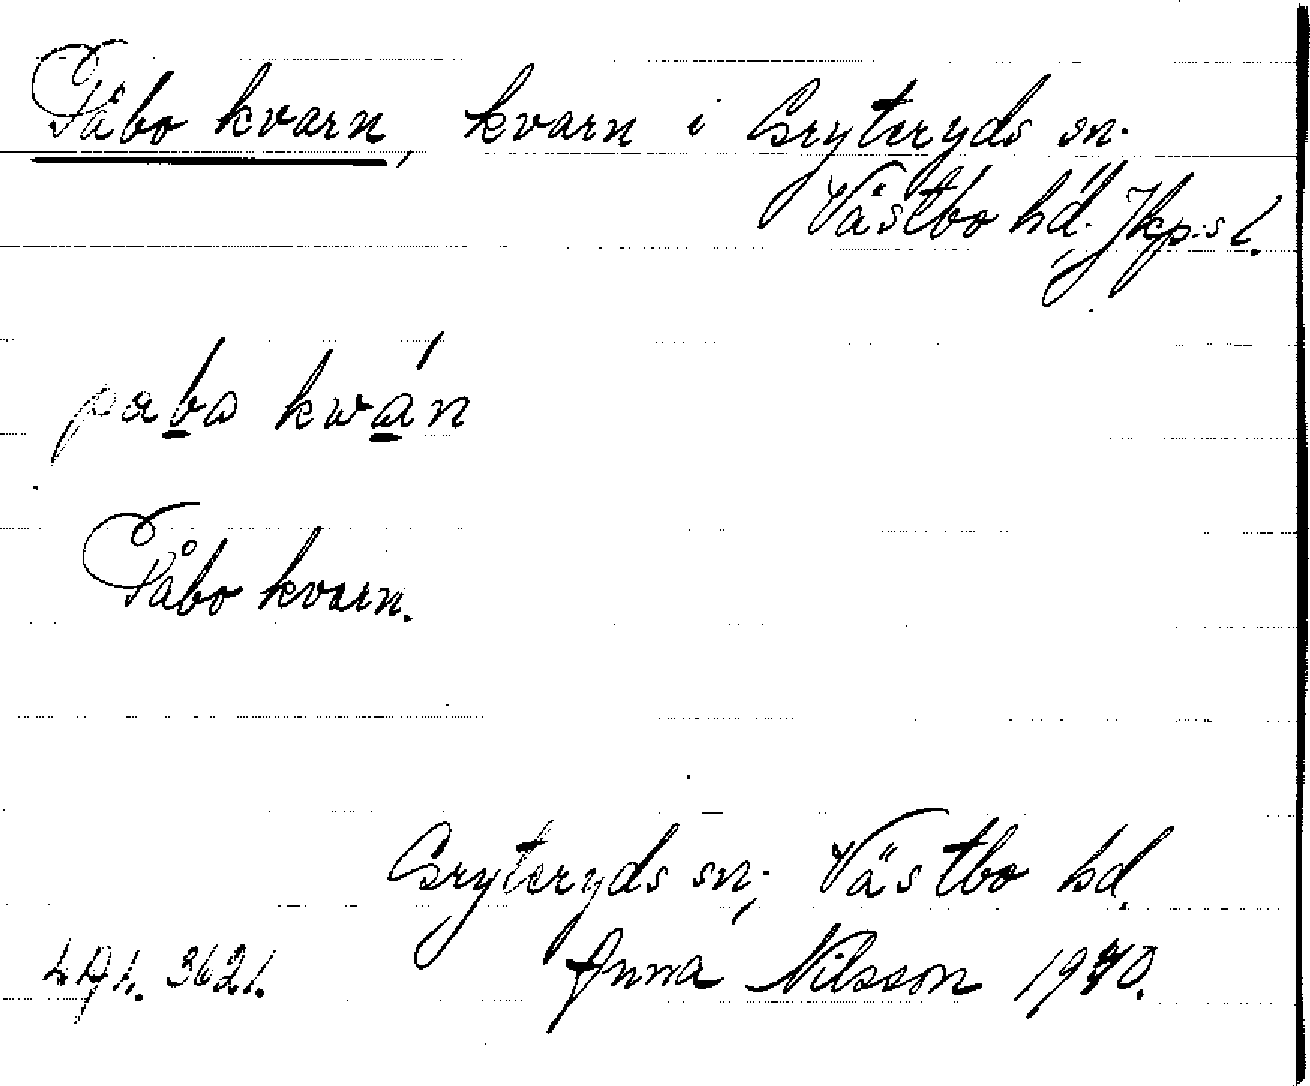 Påbo kvarn, kvarn i Gryteryds sn.
Västbo hd. Jkp:s l.
pabo kwán
Påbo kvarn.
Gryteryds sn; Västbo hd.
3621. Anna Nilsson 1940.